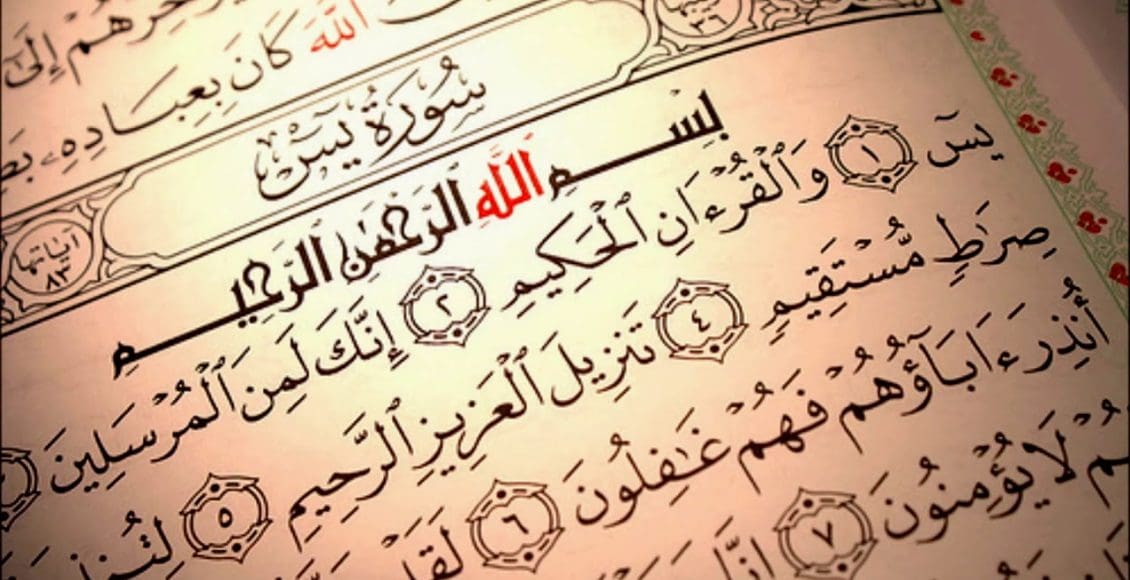 إِلَىٰ
ٱللَّهَ كَانَ بِعِبَادِهِۦ
٣٦
سُورَةُ يسٓ
آياتها
٨٣
بِسْمِ ٱللَّهِ ٱلرَّحْمَٰنِ ٱلرَّحِيمِ
يسٓ ١ وَٱلْقُرْءَانِ ٱلْحَكِيمِ ٢ إِنَّكَ لَمِنَ ٱلْمُرْسَلِينَ
صِرَٰطٍ مُّسْتَقِيمٍ ٤ تَنزِيلَ ٱلْعَزِيزِ ٱلرَّحِيمِ ٥
أُنذِرَ ءَابَآؤُهُمْ فَهُمْ غَٰفِلُونَ ٦
لَا يُؤْمِنُونَ ٧